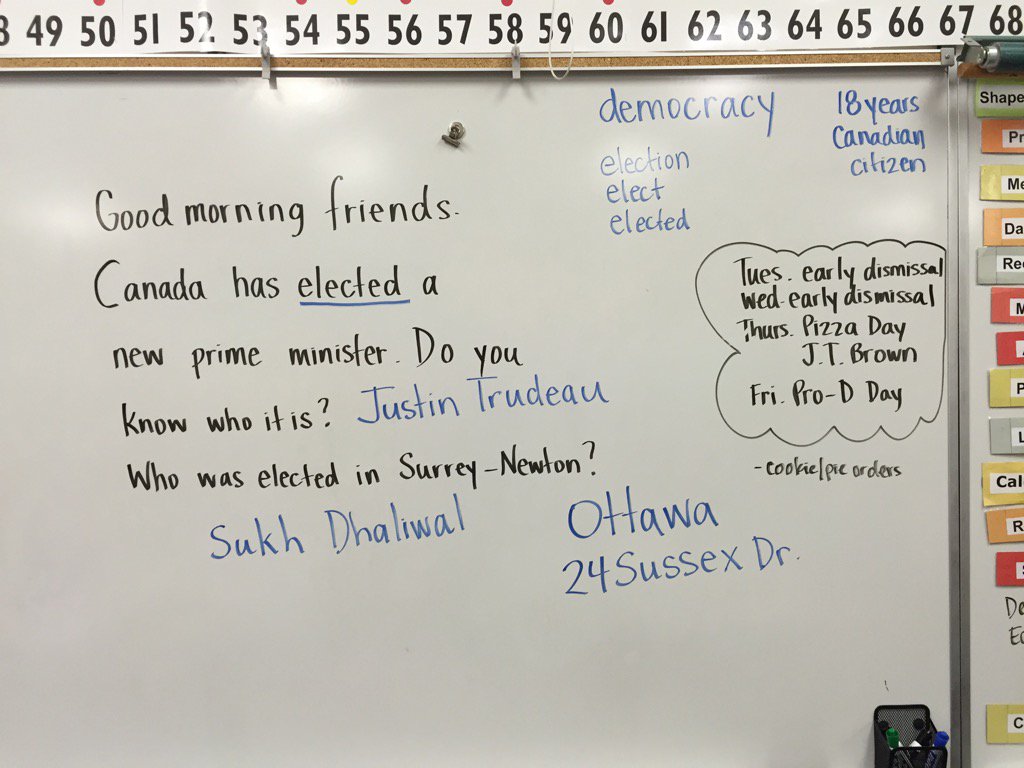 48 49 50 51 52 53 54 55 56 57 58 59 60 61 62 63 64 65 66 67 68
democracy
election
elect
elected
18 years
Canadian
citizen
Good morning friends.
Canada has elected a
new prime minister. Do you
know who it is? Justin Trudeau
Who was elected in Surrey-Newton?
Sukh Dhaliwal
Ottawa
24 Sussex Dr.
Tues. early dismissal
Wed. early dismissal
Thurs. Pizza Day
J.T. Brown
Fri. Pro-D Day
- cookie/pie orders
Shape
Pr
Me
Da
Rec
P
L
Cal
R
C